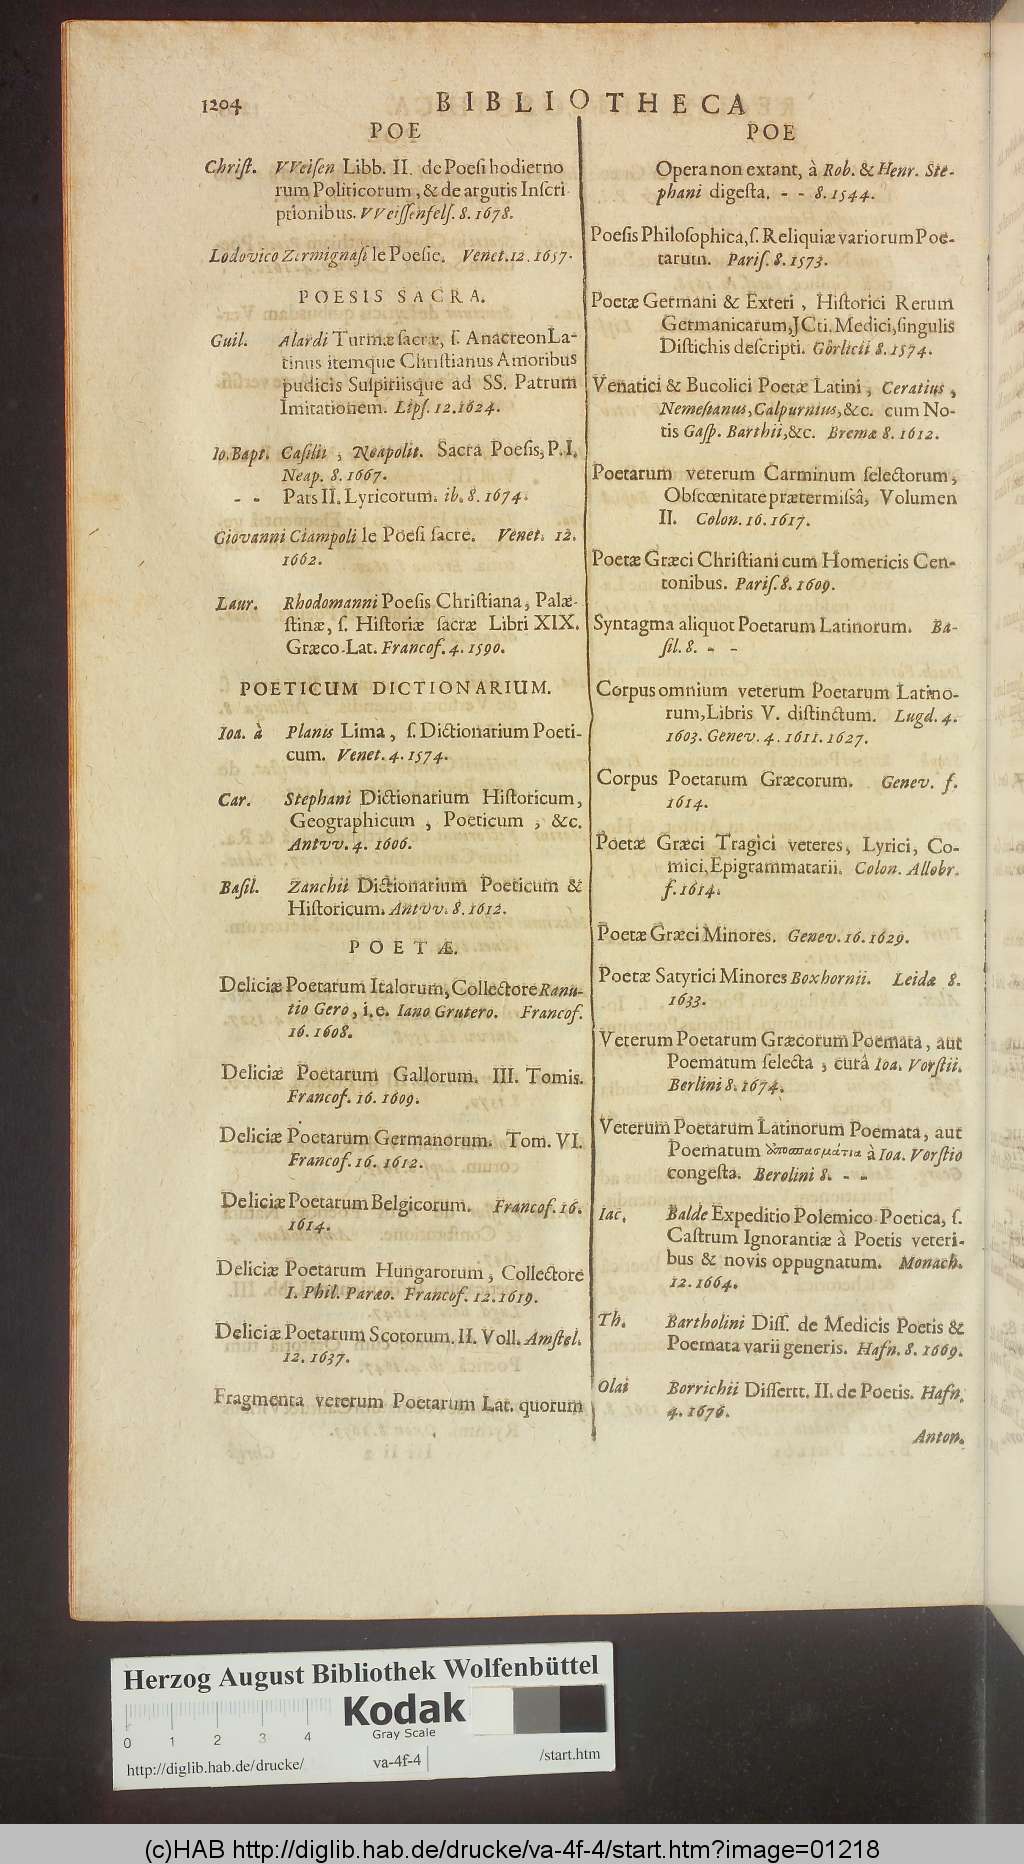 1204 BIBLIOTHECA
POE
Chriſt. VVeiſen Libb. II. de Poeſi hodierno
rum Politicorum, & de argutis Inſcri
ptionibus. VVeiſſenfelſ. 8. 1678.
Lodovico Zermignaſi le Poeſie. Venet. 12. 1657.
POESIS SACRA.
Guil. Alardi Turmæ ſacræ, ſ. Anacreon La-
tinus itemque Chriſtianus Amoribus
pudicis Suſpiriisque ad SS. Patrum
Imitationem. Lipſ. 12. 1624.
Io. Bapt. Caſilii, Neapolit. Sacra Poeſis, P. I.
Neap. 8. 1667.
- - Pars II. Lyricorum. ib. 8. 1674.
Giovanni Ciampoli le Poeſi ſacre. Venet. 12.
1662.
Laur. Rhodomanni Poeſis Chriſtiana, Palæ-
ſtinæ, ſ. Hiſtoriæ ſacræ Libri XIX.
Græco-Lat. Francof. 4. 1590.
POETICUM DICTIONARIUM.
Ioa. à Planis Lima, ſ. Dictionarium Poeti-
cum. Venet. 4. 1574.
Car. Stephani Dictionarium Hiſtoricum,
Geographicum, Poeticum, &c.
Antvv. 4. 1606.
Baſil. Zanchii Dictionarium Poeticum &
Hiſtoricum. Antvv. 8. 1612.
POETÆ.
Deliciæ Poetarum Italorum, Collectore Ranu-
tio Gero, i. e. Iano Grutero. Francof.
16. 1608.
Deliciæ Poetarum Gallorum. III. Tomis.
Francof. 16. 1609.
Deliciæ Poetarum Germanorum. Tom. VI.
Francof. 16. 1612.
Deliciæ Poetarum Belgicorum. Francof. 16.
1614.
Deliciæ Poetarum Hungarorum, Collectore
I. Phil. Paræo. Francof. 12. 1619.
Deliciæ Poetarum Scotorum. II. Voll. Amſtel.
12. 1637.
Fragmenta veterum Poetarum Lat. quorum
POE
Opera non extant, à Rob. & Henr. Ste-
phani digeſta. - - 8. 1544.
Poeſis Philoſophica, ſ. Reliquiæ variorum Poe-
tarum. Pariſ. 8. 1573.
Poetæ Germani & Exteri, Hiſtorici Rerum
Germanicarum, JCti, Medici, ſingulis
Diſtichis deſcripti. Görlicii 8. 1574.
Venatici & Bucolici Poetæ Latini, Ceratius,
Nemeſianus, Calpurnius, &c. cum No-
tis Gaſp. Barthii, &c. Bremæ 8. 1612.
Poetarum veterum Carminum ſelectorum,
Obſcœnitate prætermiſſâ, Volumen
II. Colon. 16. 1617.
Poetæ Græci Chriſtiani cum Homericis Cen-
tonibus. Pariſ. 8. 1609.
Syntagma aliquot Poetarum Latinorum. Ba-
ſil. 8. - -
Corpus omnium veterum Poetarum Latino-
rum, Libris V. diſtinctum. Lugd. 4.
1603. Genev. 4. 1611. 1627.
Corpus Poetarum Græcorum. Genev. f.
1614.
Poetæ Græci Tragici veteres, Lyrici, Co-
mici, Epigrammatarii. Colon. Allobr.
f. 1614.
Poetæ Græci Minores. Genev. 16. 1629.
Poetæ Satyrici Minores Boxhornii. Leidæ 8.
1633.
Veterum Poetarum Græcorum Poemata, aut
Poematum ſelecta, curâ Ioa. Vorſtii.
Berlini 8. 1674.
Veterum Poetarum Latinorum Poemata, aut
Poematum ἀποσπασμάτια à Ioa. Vorſtio
congeſta. Berolini 8. - -
Iac. Balde Expeditio Polemico-Poetica, ſ.
Caſtrum Ignorantiæ à Poetis veteri-
bus & novis oppugnatum. Monach.
12. 1664.
Th. Bartholini Diſſ. de Medicis Poetis &
Poemata varii generis. Hafn. 8. 1669.
Olai Borrichii Diſſertt. II. de Poetis. Hafn.
4. 1676.
Anton.
Herzog August Bibliothek Wolfenbüttel
Kodak
Gray Scale
0 1 2 3 4
http://diglib.hab.de/drucke/ va-4f-4 /start.htm
(c)HAB http://diglib.hab.de/drucke/va-4f-4/start.htm?image=01218